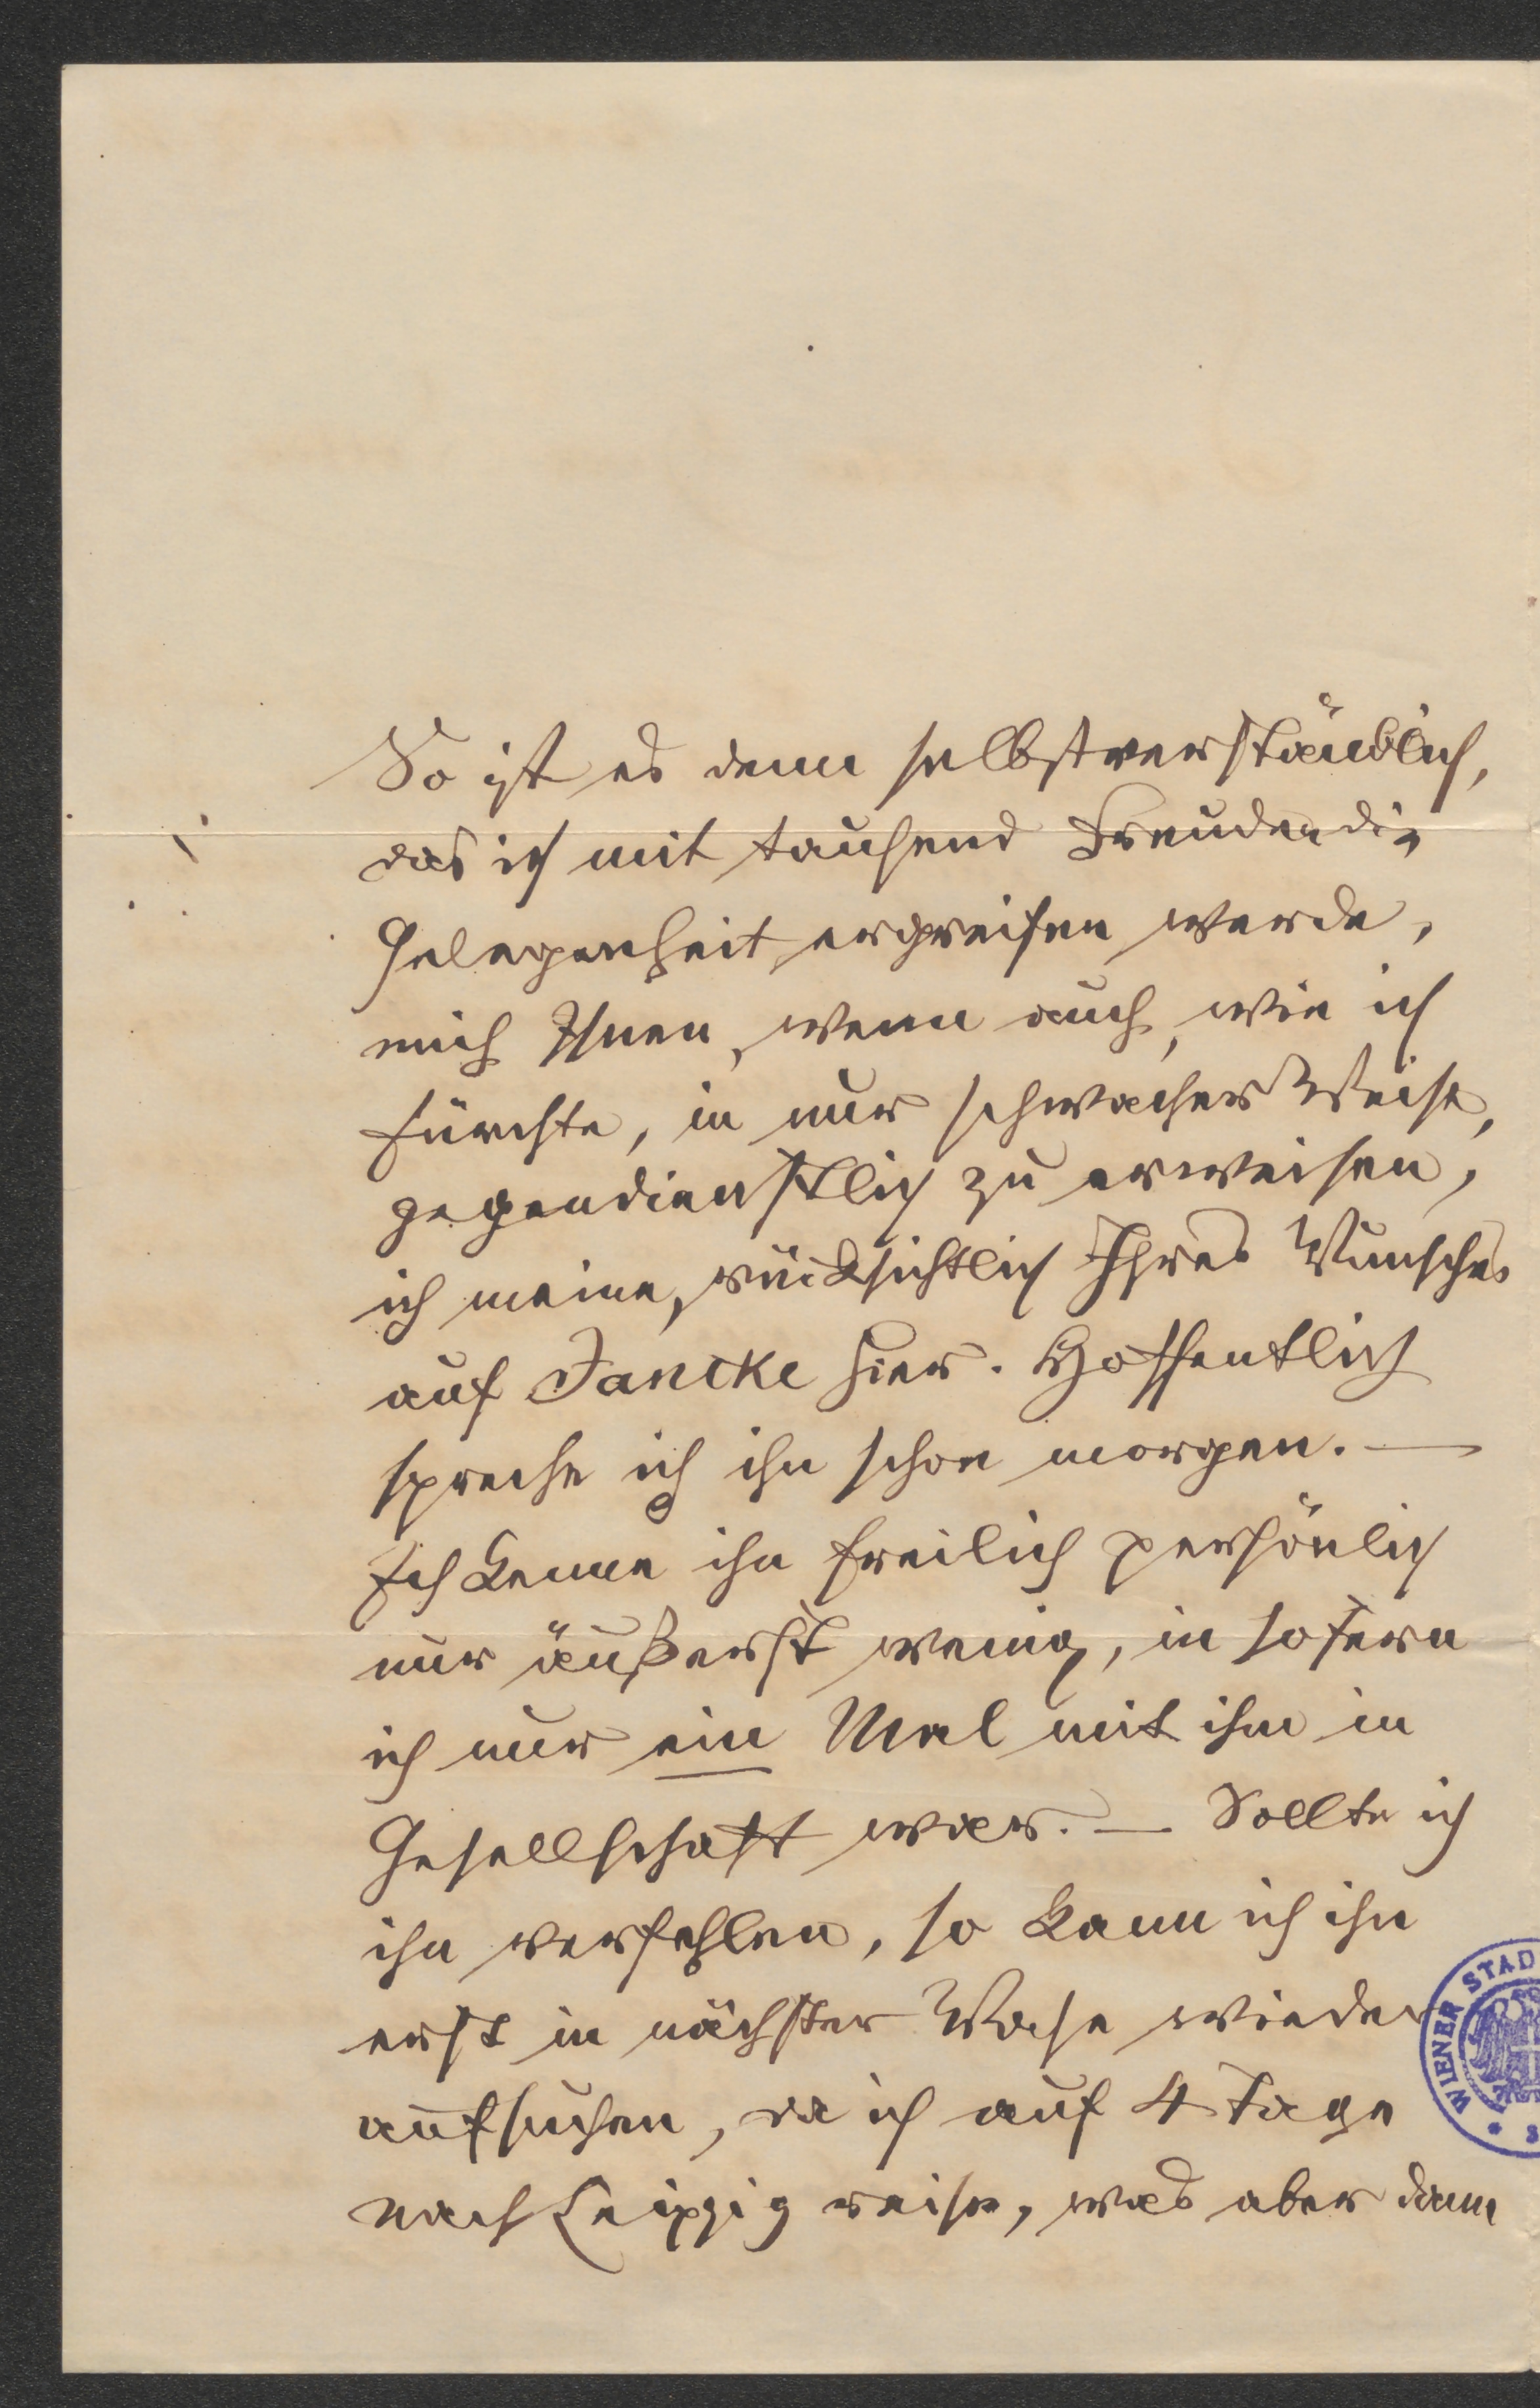 So ist es denn selbstverständlich,
das ich mit tausend Freuden die
Gelegenheit ergreifen werde,
mich Ihnen, wenn auch, wie ich
fürchte, in nur schwacher Weise,
gegendienstlich zu erweisen,
ich meine, rücksichtlich Ihres Wunsches
auf Jancke hier. Hoffentlich
spreche ich ihn schon morgen. —
Ich kenne ihn freilich persönlich
nur äußerst wenig, in sofern
ich nur ein Mal mit ihm in
Gesellschaft war. — Sollte ich
ihn verfehlen, so kann ich ihn
erst in nächster Woche wieder
aufsuchen, da ich auf 4 Tage
nach Leipzig reise, was aber dann
WIENER STAD